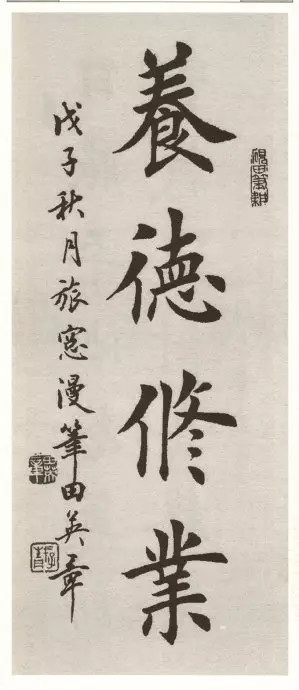 養德修業
戊子秋月旅窓漫筆田英章